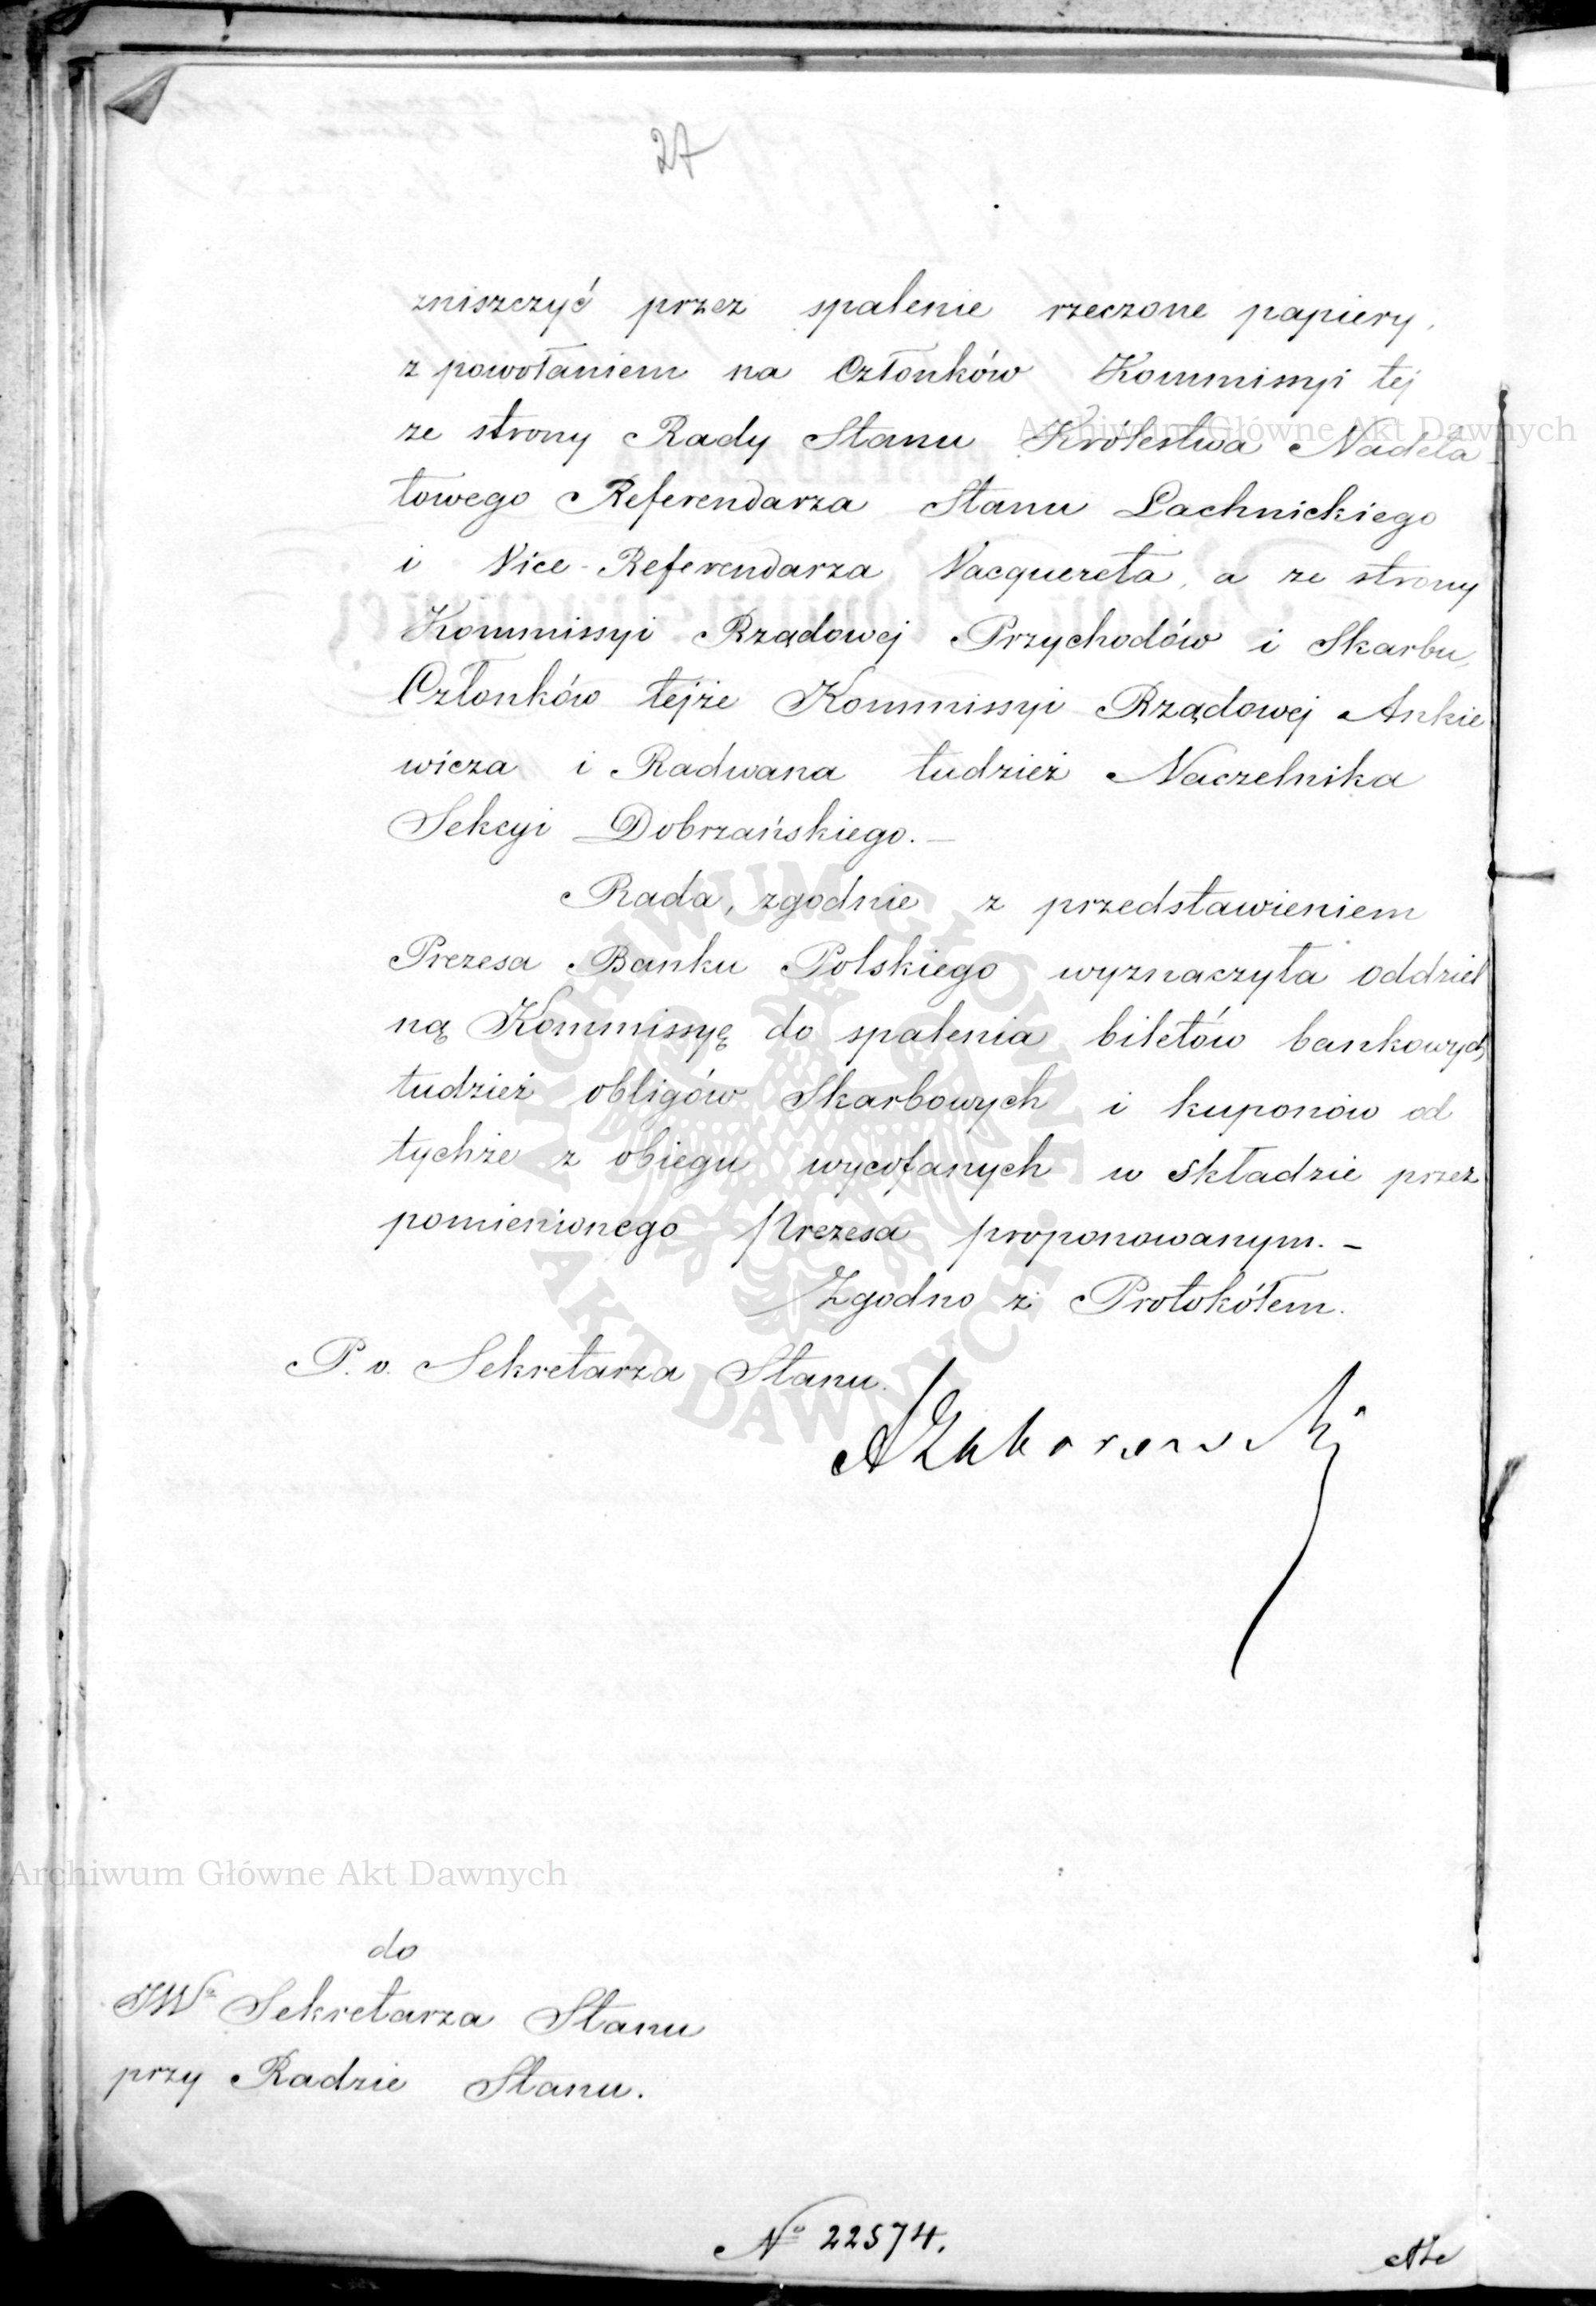 27
zniszczyć przez spalenie rzeczone papiery,
z powołaniem na Członków Kommissyi tej
ze strony Rady Stanu Królestwa Nadeta
towego Referendarza Stanu Lachnickiego
i Vice-Referendarza Vacquereta, a ze strony
Kommissyi Rządowej Przychodów i Skarbu,
Członków tejże Kommissyi Rządowej Ankie
wicza i Radwana tudzież Naczelnika
Sekcyi Dobrzańskiego.—
Rada, zgodnie z przedstawieniem
Prezesa Banku Polskiego wyznaczyła oddziel
ną Kommissyę do spalenia biletów bankowych
tudzież obligów Skarbowych i kuponów od
tychże z obiegu wycofanych w składzie przez
pomienionego Prezesa proponowanym.—
Zgodno z Protokółem.
P. o. Sekretarza Stanu.
Archiwum Główne Akt Dawnych
ARCHIWUM GŁÓWNE
AKT DAWNYCH
Archiwum Główne Akt Dawnych
do
JWo Sekretarza Stanu
przy Radzie Stanu.
No 22574.